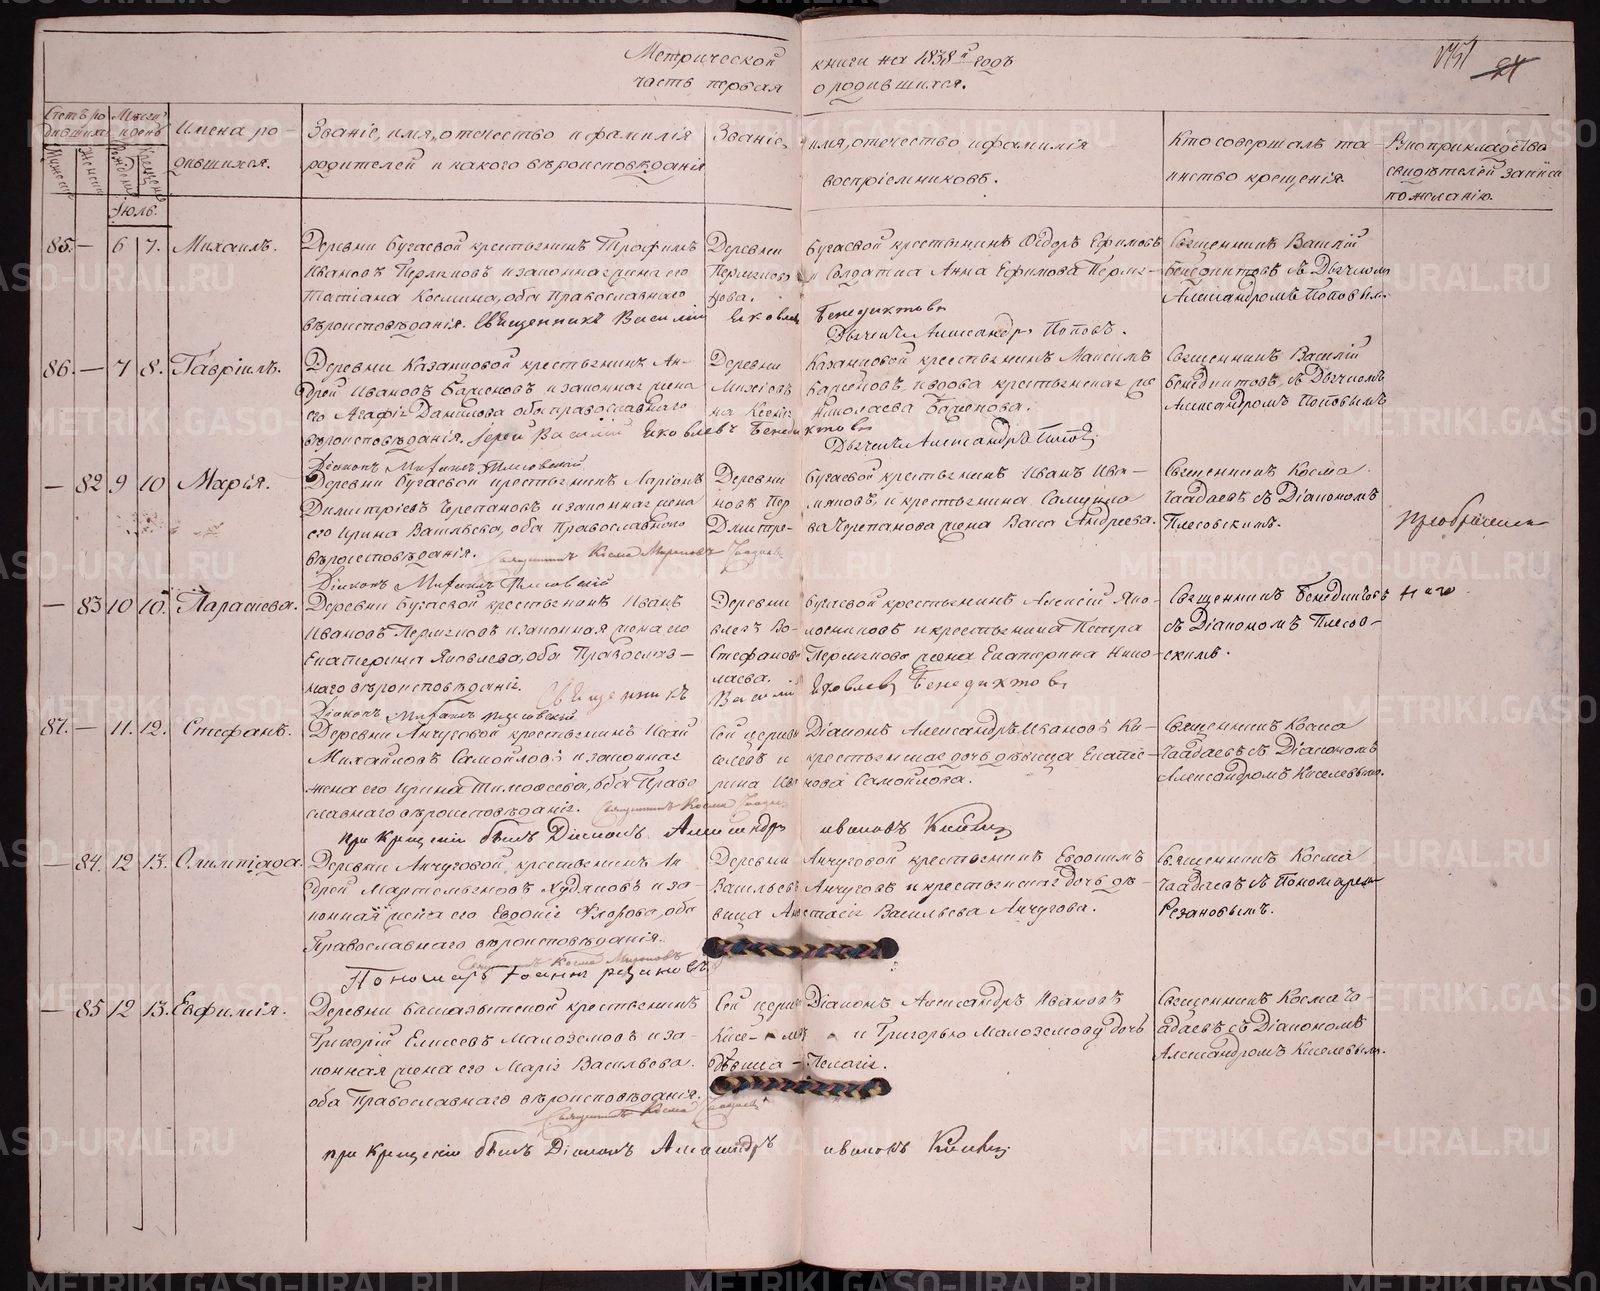 Метрической книги на 1838й годъ
часть первая о родившихся.
Счетъ родившихся
Мужеск. Женск.
Мѣсяцъ и день
Рожденія Крещенія
Имена родившихся.
Званіе, имя, отечество и фамилія
родителей и какого вѣроисповѣданія
Званіе, имя, отечество и фамилія
воспріемниковъ.
Кто совершалъ таинство крещенія.
свидѣтелей записи
по желанію.
Іюль.
85. — 6 7. Михаилъ.
Деревни Бугаевой крестьянинъ Трофимъ
Ивановъ Пермяковъ и законная жена его
Татіана Космина, оба Православнаго
вѣроисповѣданія. Священникъ Василій Яковлевъ Бенедиктовъ
Деревни Бугаевой крестьянинъ Ѳедоръ Ефимовъ
Пермяковъ и Солдатка Анна Ефимова Пермякова.
Дьячекъ Александръ Поповъ.
Священникъ Василій
Бенедиктовъ съ Дьячкомъ
Александромъ Поповымъ.
86. — 7 8. Гавріилъ.
Деревни Казанцовой крестьянинъ Андрей
Ивановъ Баженовъ и законная жена
его Агафія Данилова оба православнаго
вѣроисповѣданія. Іерей Василій Яковлевъ Бенедиктовъ
Деревни Казанцовой крестьянинъ Максимъ
Баженовъ, и вдова крестьянская же
Николаева Баженова.
Дьячекъ Александръ Поповъ
Священникъ Василій
Бенедиктовъ, съ Дьячкомъ
Александромъ Поповымъ
Діаконъ Михаилъ Плесовскій
— 82 9 10 Марія.
Деревни Бугаевой крестьянинъ Ларіонъ
Димитріевъ Черепановъ и законная жена
его Ирина Васильева, оба Православнаго
вѣроисповѣданія. Священникъ Косма Мироновъ Чаадаевъ
Деревни Бугаевой крестьянинъ Иванъ
и крестьянина
Черепанова жена Васса Андреева.
Священникъ Косма
Чаадаевъ съ Діакономъ
Плесовскимъ.
Діаконъ Михаилъ Плесовскій
— 83 10 10. Параскева.
Деревни Бугаевой крестьянинъ Иванъ
Ивановъ Пермяковъ и законная жена его
Екатерина Яковлева, оба Православнаго
вѣроисповѣданія. Священникъ Василій Яковлевъ Бенедиктовъ
Деревни Бугаевой крестьянинъ Алексѣй Яковлевъ
и крестьянина Петра
Пермякова жена Екатерина Николаева.
Священникъ Бенедиктовъ
съ Діакономъ Плесовскимъ.
Діаконъ Михаилъ Плесовскій
87. — 11. 12. Стефанъ.
Деревни Анчуговой крестьянинъ Исай
Михайловъ Самойловъ и законная
жена его Ирина Тимоѳеева, оба Православнаго
вѣроисповѣданія. Священникъ Косма Чаадаевъ
Сей церкви Діаконъ Александръ Ивановъ Киселевъ
и крестьянская дочь дѣвица Екатерина
Иванова Самойлова.
Священникъ Косма
Чаадаевъ съ Діакономъ
Александромъ Киселевымъ.
при Крещеніи былъ Діаконъ Александръ Ивановъ Киселевъ
— 84. 12 13. Олимпіада.
Деревни Анчуговой, крестьянинъ Андрей
Мартемьяновъ Худяковъ и законная
жена его Евдокія Флорова, оба
Православнаго вѣроисповѣданія.
Священникъ Косма Мироновъ
Пономарь Іоаннъ Резановъ
Деревни Анчуговой крестьянинъ Евдокимъ
Васильевъ Анчуговъ и крестьянская дочь дѣвица
Анастасія Васильева Анчугова.
Священникъ Косма
Чаадаевъ съ Пономаремъ
Резановымъ.
— 85 12 13. Евфимія.
крестьянинъ
Григорій Елисеевъ Малоземовъ и законная
жена его Марія Васильева.
оба Православнаго вѣроисповѣданія.
Священникъ Косма Чаадаевъ
Сей церкви Діаконъ Александръ Ивановъ
Киселевъ и Григорью Малоземову дочь
дѣвица — Пелагія.
Священникъ Косма Чаадаевъ
съ Діакономъ
Александромъ Киселевымъ.
при Крещеніи былъ Діаконъ Александръ Ивановъ Киселевъ
METRIKI.GASO-URAL.RU